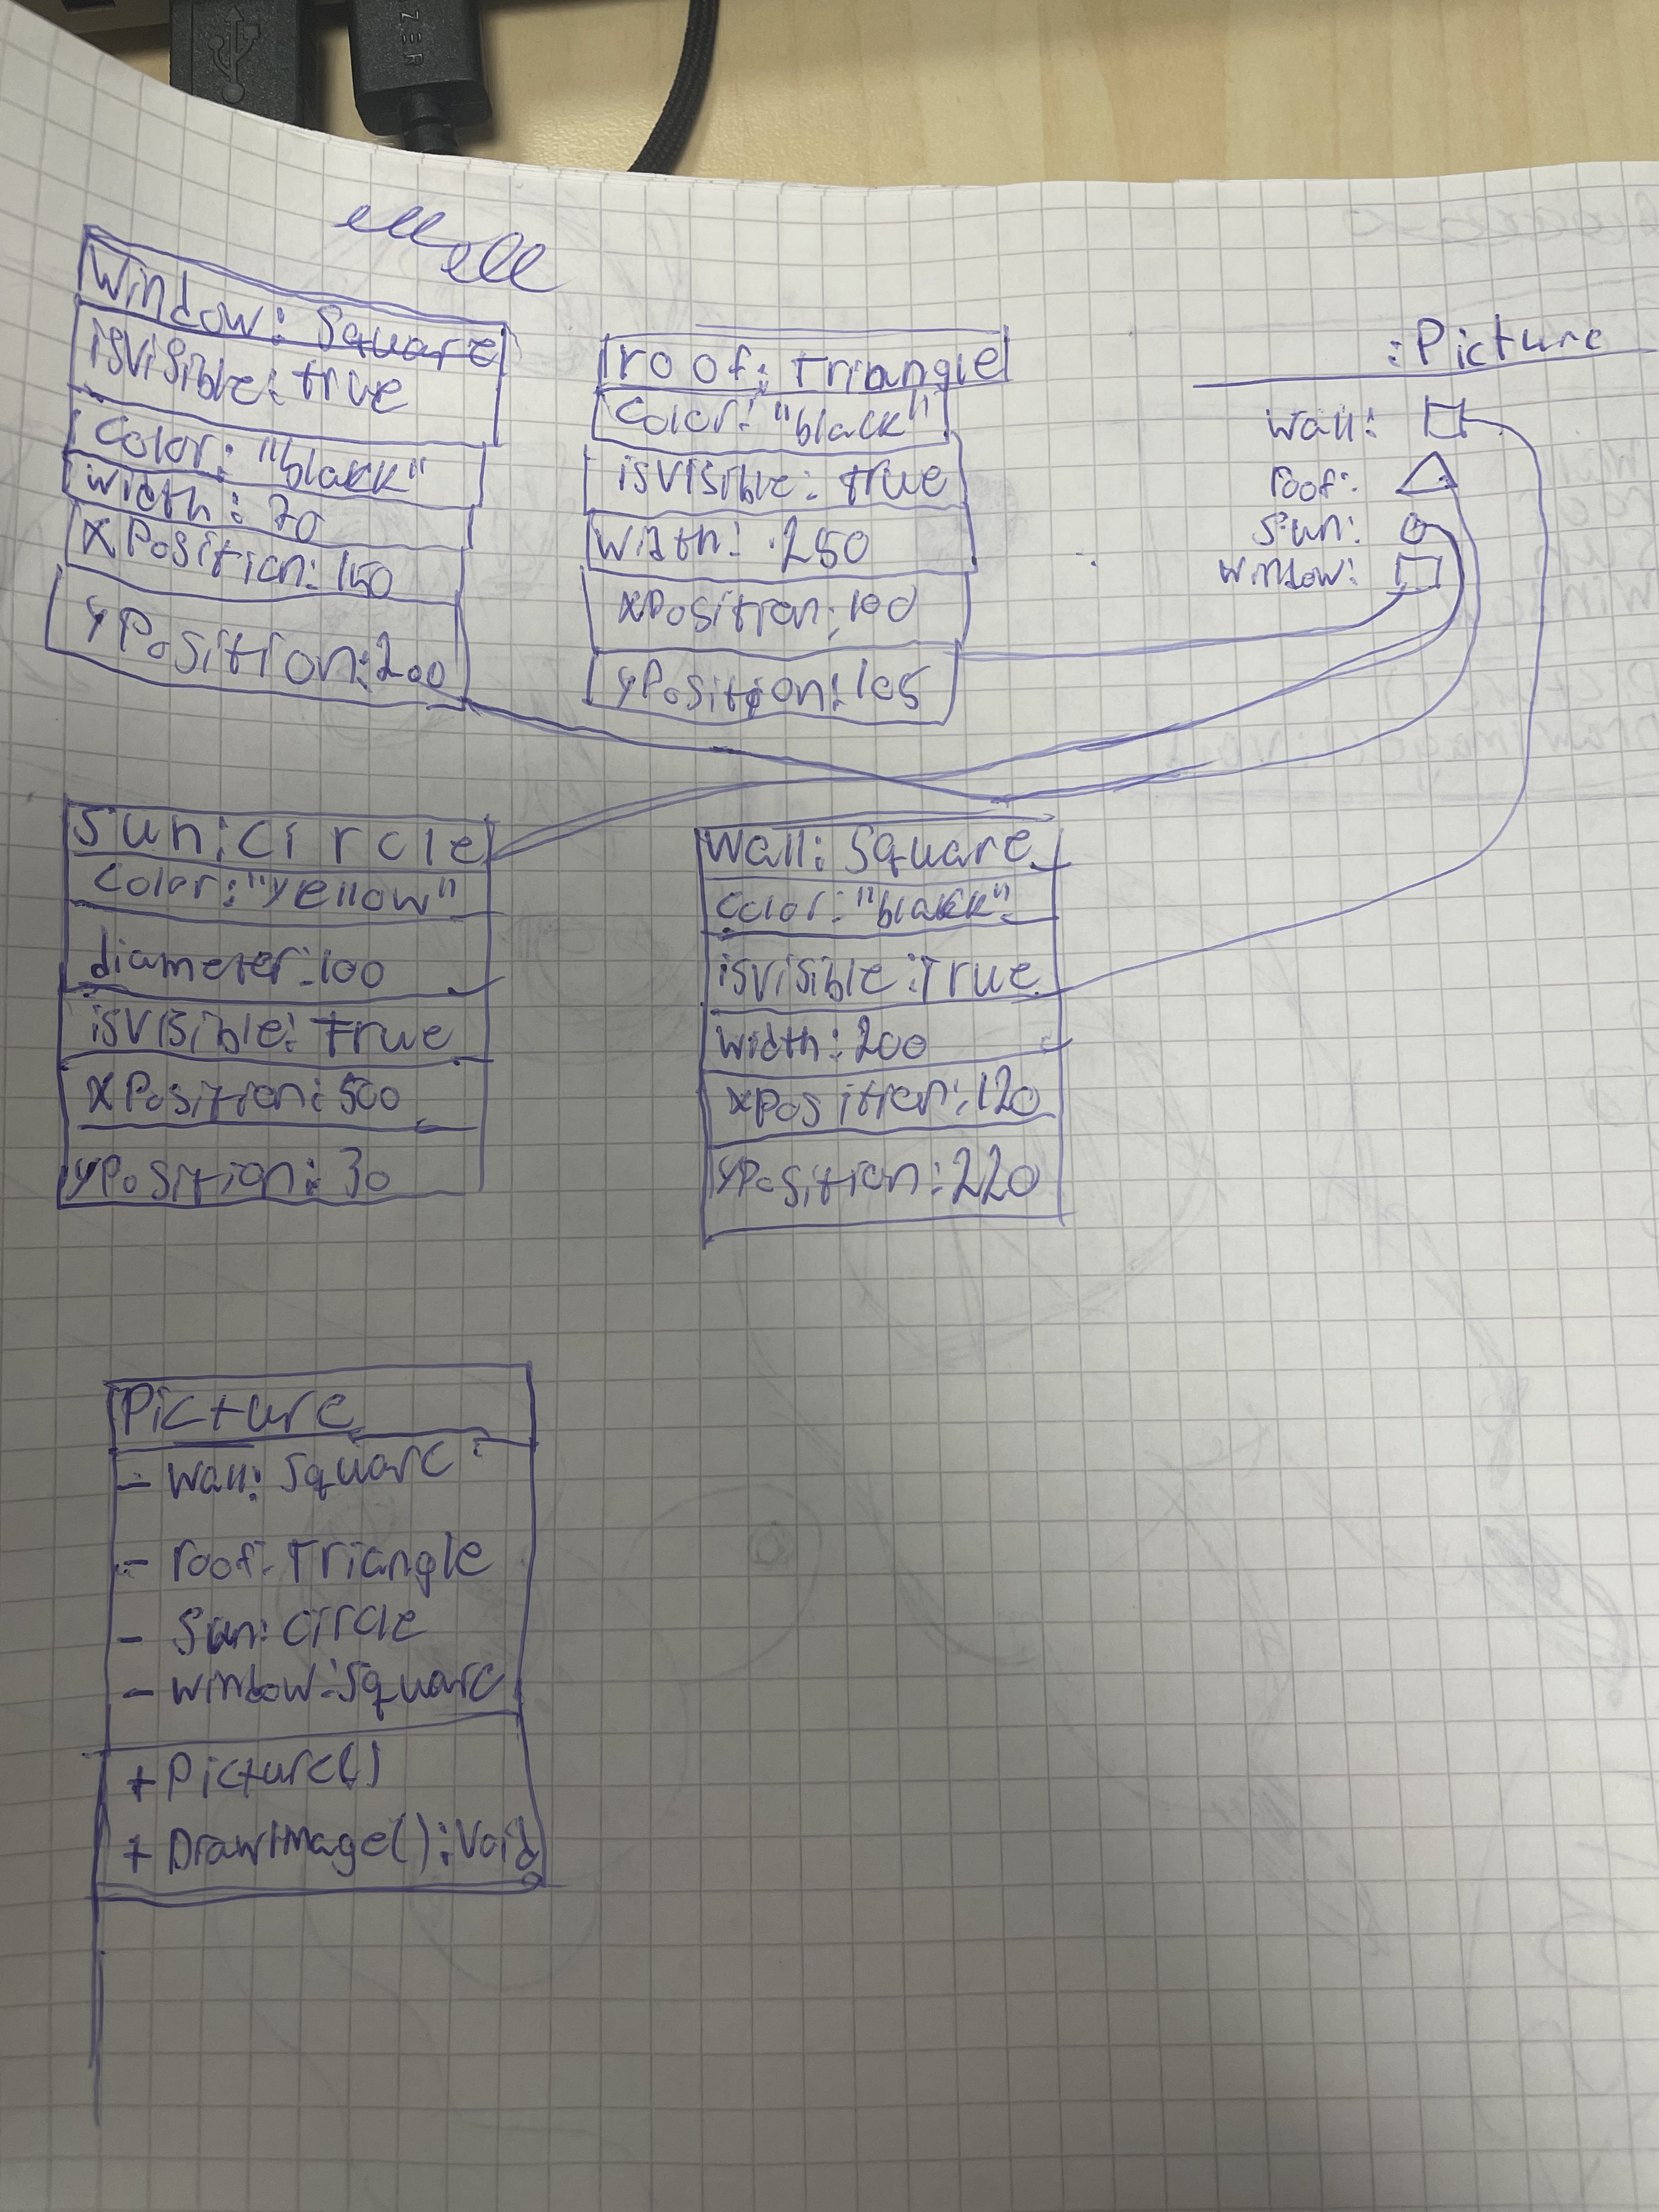 ZER
Window: Square
isVisible: true
Color: "black"
width: 70
xPosition: 150
yPosition: 200
roof: Triangle
Color: "black"
isVisible: true
Width: 250
xPosition: 100
yPosition: 105
:Picture
Wall:
roof:
Sun:
window:
Sun: Circle
Color: "yellow"
diameter: 100
isVisible: true
xPosition: 500
yPosition: 30
Wall: Square
Color: "black"
isVisible: True
Width: 200
xPosition: 120
yPosition: 220
Picture
- Wall: Square
- roof: Triangle
- Sun: Circle
- window: Square
+ Picture()
+ DrawImage(): Void